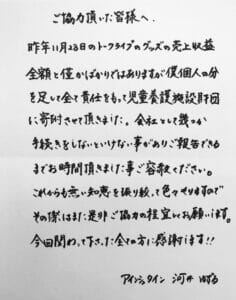 ご協力頂いた皆様へ.
昨年11月23日のトークライブのグッズの売上収益
全額と僅かばかりではありますが僕個人の分
を足して全て責任をもって児童養護施設財団
に寄附させて頂きました。会社として幾つか
手続きをしないといけない事がありご報告できる
までお時間頂けました事ご容赦ください。
これからも無い知恵を振り絞って色々やりますので
その際はまた是非ご協力の程宜しくお願います。
今回関わって下さった全ての方に感謝します!!
アインシュタイン 河井ゆずる